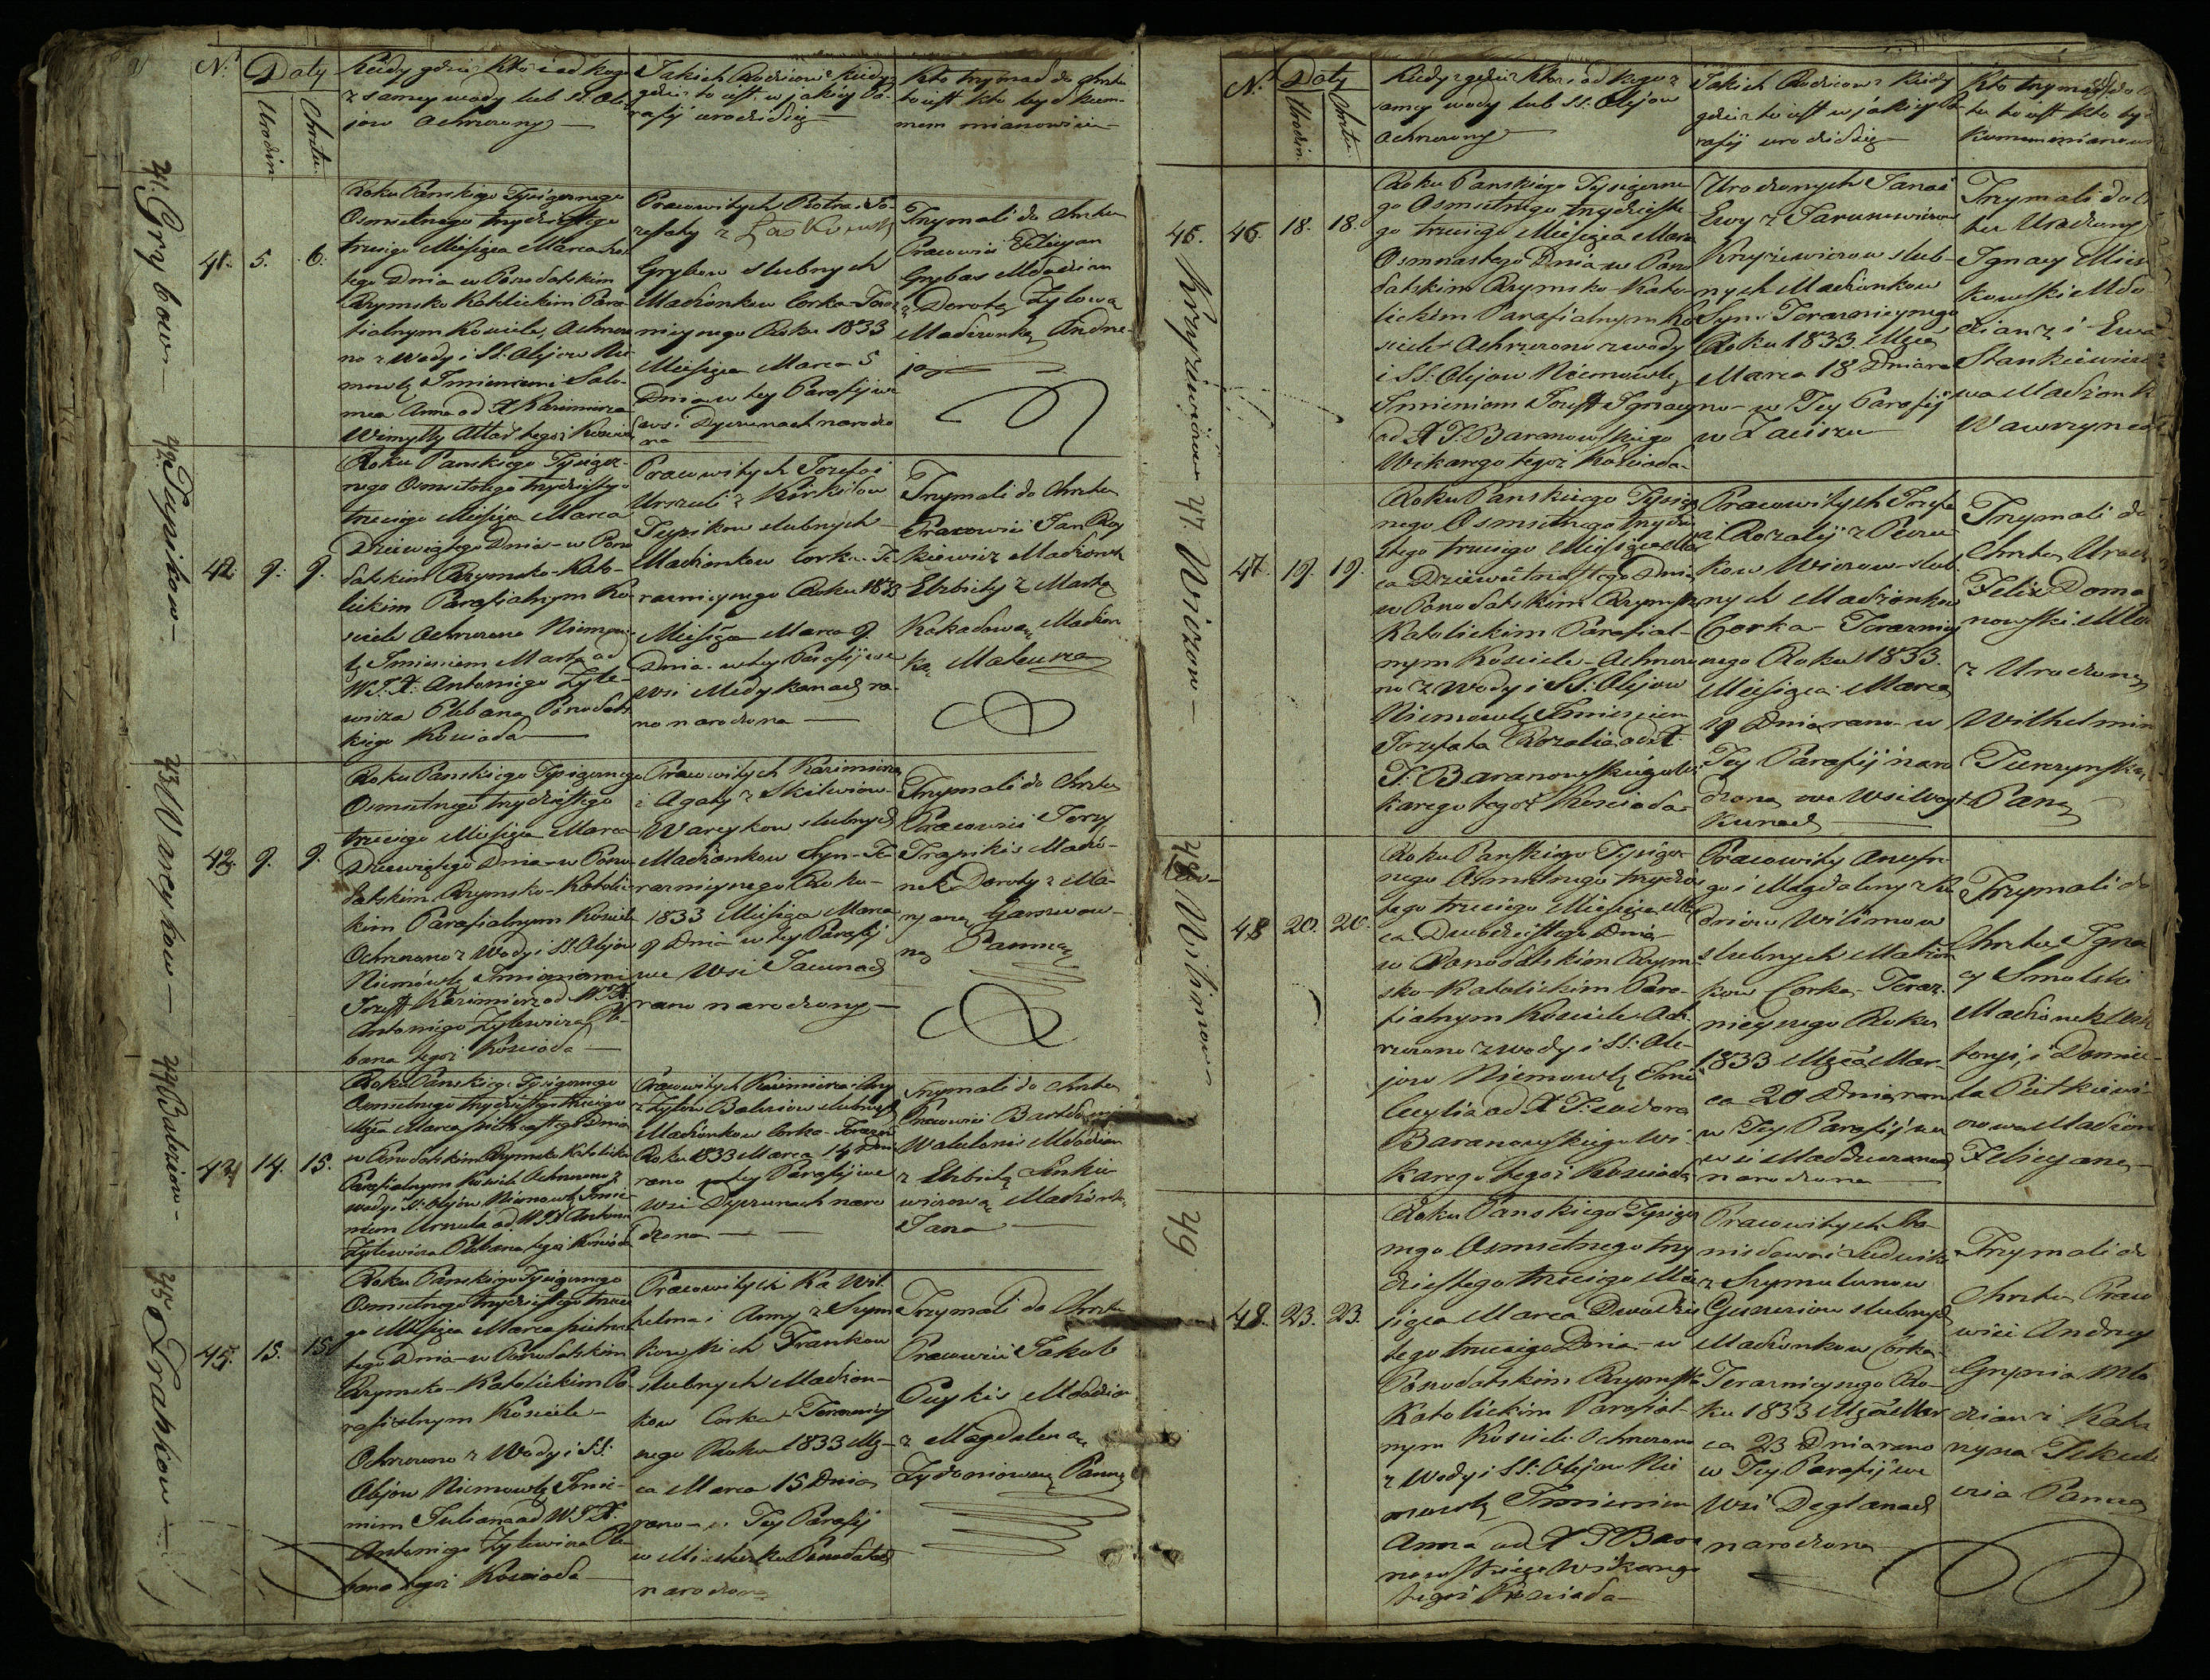 N.
Daty
Urodzin
Chrztu
Kiedy gdzie Kto i od kogo
z samey wody lub SS. Ole-
jow Ochrzczony
Jakich Rodziców kiedy
gdzie to iest w jakiey Pa-
rafij urodził się
Kto trzymał do chrztu
to iest kto był kum-
mem mianowicie
41. Grybow
41. 5. 6.
Roku Panskiego Tysiącznego
Osmsetnego trzydziestego
trzeciego Miesiąca Marca
tego Dnia w Ponodatskim
Rzymsko Katolickim Para-
fialnym Kosciele, Ochrzczo
no z Wody i SS. Olejow Nie
mowlę Imionami Salo-
mea Anna od X Kazimierza
tegoż Koscioła
Pracowitych Piotra i Jo-
zefaty z
Grybow slubnych
Madżonkow Corka Teraz
nieyszego Roku 1833
Miesiąca Marca 5
Dnia w tey Parafij we
wsi Dyrzunach narodzo
na
Trzymali do Chrztu
Pracowici Felicyan
Grybas Młodzian
z Dorotą Żyłową
Madżonką Andrze
ja
42. Pupikow
42 9. 9.
Roku Panskiego Tysiącz-
nego Osmsetnego trzydziestego
trzeciego Miesiąca Marca
Dziewiątego Dnia w Pono
datskim Rzymsko-Kato-
lickim Parafialnym Ko-
sciele Ochrzczono Niemow-
lę Imieniem Marta od
W.J.X. Antoniego Żyle-
wicza Plebana Ponodats
kiego Koscioła
Pracowitych Jozefa i
Urszuli z Kirkiłow
slubnych
Madżonkow Corka Te
raznieyszego Roku 1833
Miesiąca Marca 9.
Dnia w tey Parafij we
wsi Medykanach ra-
no narodzona
Trzymali do Chrztu
Pracowici Jan Roy
kiewicz Madżonek
Elżbiety z Martą
Kokadową Madżon
ką Mateusza
43 Wareykow
43. 9. 9.
Roku Panskiego Tysiącznego
Osmsetnego trzydziestego
trzeciego Miesiąca Marca
Dziewiątego Dnia w Pono-
datskim Rzymsko-Katolic-
kim Parafialnym Kosciele
Ochrzczono z Wody i SS. Olejow
Niemowlę Imionami
Jozeff Kazimierz od W.J.X.
Antoniego Żylewicza Ple-
bana tegoż Koscioła
Pracowitych Kazimierza
i Agaty z Skilwiow
Wareykow slubnych
Madżonkow Syn Te-
raznieyszego Roku
1833 Miesiąca Marca
9 Dnia w tey Parafij
we Wsi Jacunach
rano narodzony
Trzymali do Chrztu
Pracowici Jerzy
Trapikis Madżo-
nek Doroty z Ma-
ryaną
ną Panną
44 Balziow
44 14. 15.
Roku Panskiego Tysiącznego
Osmsetnego trzydziestego trzeciego
Mca Marca piętnastego Dnia
w Ponodatskim Rzymsko Katolickim
Parafialnym Kosciele Ochrzczono z
wody i SS. Olejow Niemowlę Imie-
niem Urszula od W.J.X. Antoniego
Żylewicza Plebana tegoż Koscioła
Pracowitych Kazimierza i Anny
z Żyłow Balziow slubnych
Madżonkow Corka Teraz
Roku 1833 Marca 14 Dnia
rano w tey Parafij we
wsi Dyrzunach naro
dzona
Trzymali do Chrztu
Pracowici Bartłomiej
Wabalonis Młodzian
z Elżbietą Sinkie
wiczową Madżonką
Jana
45 Frankow
45. 15. 15
Roku Panskiego Tysiącznego
Osmsetnego trzydziestego trzecie
go Miesiąca Marca piętnas
tego Dnia w Ponodatskim
Rzymsko-Katolickim Pa
rafialnym Kosciele
Ochrzczono z Wody i SS.
Olejow Niemowlę Imie-
niem Julianna od W.J.X.
Antoniego Żylewicza Ple
bana tegoż Koscioła
Pracowitych Ka Wil
helma i Anny z Szym
kowskich Frankow
slubnych Madżon-
kow Corka Terazniey
szego Roku 1833 Mie-
ca Marca 15 Dnia
rano w Tey Parafij
w Miasteczku Ponodatach
narodzona
Trzymali do Chrztu
Pracowici Jakub
Puykis Młodzian
z Magdaleną
Żydoniową Panną
N.
Daty
Urodzin.
Chrztu.
Kiedy gdzie Kto i od kogo z
samey wody lub SS. Olejow
Ochrzczony
Jakich Rodzicow Kiedy
gdzie to iest w jakiey Pa
rafij urodził się
Kto trzymał do
tu to iest kto by
kumem mianow
46. Kryżewiczow
46. 18. 18.
Roku Panskiego Tysiączne
go Osmsetnego trzydzieste
go trzeciego Miesiąca Marca
Osmnastego Dnia w Pono
datskim Rzymsko-Kato-
lickim Parafialnym Ko
sciele Ochrzczono z wody
i SS. Olejow Niemowlę
Imieniom Jozeff Ignacy
od X J. Baranowskiego
Wikarego tegoż Koscioła
Urodzonych Jana i
Ewy z Jaruszewiczow
Kryżewiczow slub-
nych Madżonkow
Syn Teraznieyszego
Roku 1833 Mca
Marca 18 Dnia ra
no w Tey Parafij
w Zaciszu
Trzymali do
tu Urodzony
Ignacy Mic
kowski Mło
dzian z i Ewa
Stankiewiczo
wa Madżonk
Wawrzyńca
47. Wiczow
47. 19. 19.
Roku Panskiego Tysiącz
nego Osmsetnego trzydzie
stego trzeciego Miesiąca Mar
ca Dziewiętnastego Dnia
w Ponodatskim Rzymsko
Katolickim Parafial-
nym Kosciele Ochrzczo
no z Wody i SS. Olejow
Niemowlę Imieniem
Jozefata Rozalia od X
J. Baranowskiego Wi
karego tegoż Koscioła
Pracowitych Jozefa
i Rozalij z
kow Wiczow slub
nych Madżonkow
Corka Terazniey
szego Roku 1833.
Miesiąca Marca
19 Dnia rano w
Tey Parafij naro
dzona we Wsi
kunach
Trzymali do
Chrztu Urodz
Felix Doma
nowski Mło
z Urodzoną
Wilhelmin
Turczynską
Paną
48 Wilimow
48 20. 20.
Roku Panskiego Tysiącz
nego Osmsetnego trzydzies
tego trzeciego Miesiąca Mar
ca Dwudziestego Dnia
w Ponodatskim Rzym
sko-Katolickim Para-
fialnym Kosciele Och
rzczono z wody i SS. Ole-
jow Niemowlę Imie
Cecylia od X Teodora
Baranowskiego Wi
karego tegoż Koscioła
Pracowity Onufre
go i Magdaleny z
Wilimow
slubnych Madżon
kow Corka Teraz
nieyszego Roku
1833 Mca Mar-
ca 20 Dnia rano
w Tey Parafij we
wsi
narodzona
Trzymali do
Chrztu Igna
cy Smolski
Madżonek Wik
toryi, i Domice-
la Pietkiewi-
czowa Madżon
Felicyana
49
48. 23. 23.
Roku Panskiego Tysiącz
nego Osmsetnego trzy
dziestego trzeciego Mie
siąca Marca Dwudzies
tego trzeciego Dnia w
Ponodatskim Rzymsko
Katolickim Parafial-
nym Kosciele Ochrzczono
z Wody i SS. Olejow Nie
mowlę Imieniem
Anna od X J Bara
nowskiego Wikarego
tegoż Koscioła
Pracowitych Sta-
nisława i Ludwiki
z Szymulunow
slubnych
Madżonkow Corka
Teraznieyszego Ro-
ku 1833 Mca Mar
ca 23 Dnia rano
w Tey Parafij we
Wsi Deglanach
narodzona
Trzymali do
Chrztu Praco
wici Andrzey
Mło
dzian i Kata
rzyna
Panna